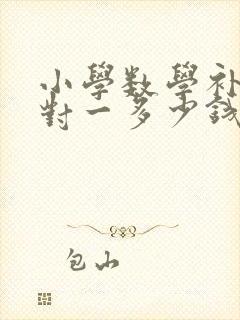 小學數學補
對一多少錢
包山